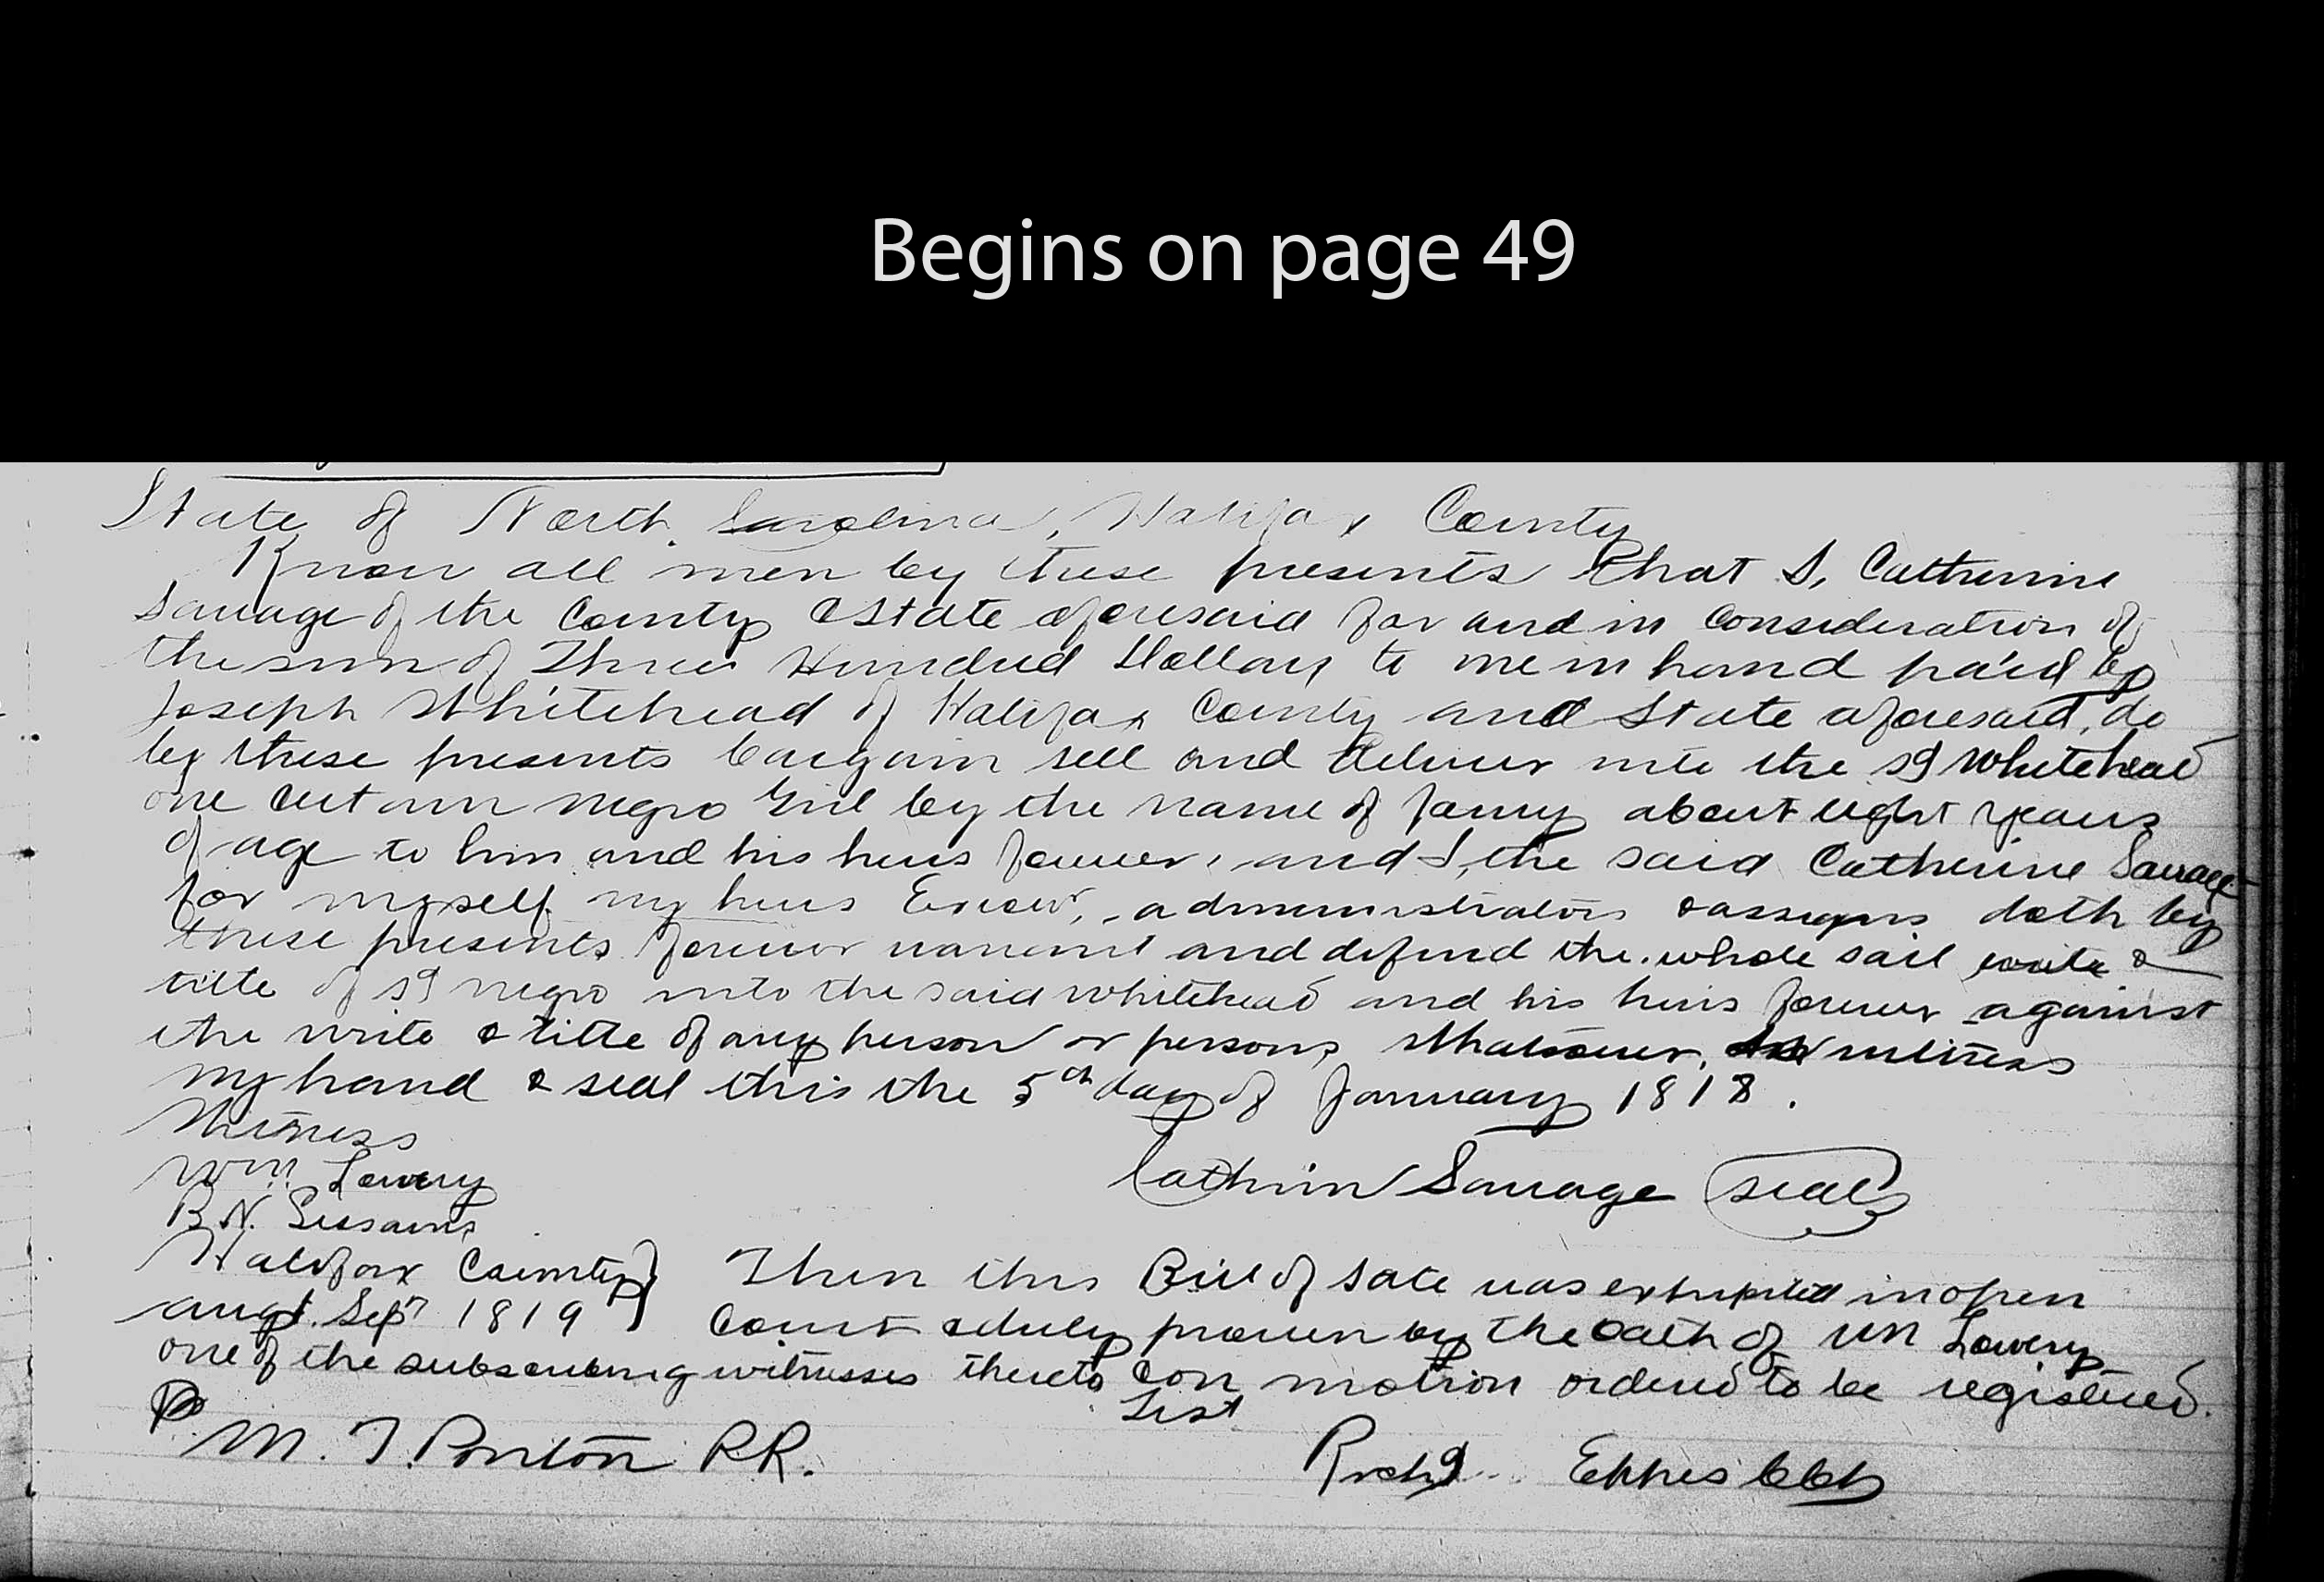 Begins on page 49
State of North Carolina, Halifax County
Know all men by these presents that I, Catherine
Savage of the County & State aforesaid for and in consideration of
the sum of Three Hundred Dollars to me in hand paid by
Joseph Whitehead of Halifax County and State aforesaid, do
by these presents bargain sell and deliver unto the sd Whitehead
one certain negro Girl by the name of about eight years
of age to him and his heirs forever, and I, the said Catherine Savage
for myself my heirs administrators & assigns doth by
these presents forever warrent and defend the whole sail write &
title of sd negro unto the said Whitehead and his heirs forever against
the write & title of any person or persons Whatsoever. witness
my hand & seal this the 5th day of January 1818.
Witness
Wm. Lowery
B. N.
Cathrin Savage seal
Halifax County } Then this Bill of sale was in open
augt. Sept 1819 } Court & duly proven by the oath of Wm Lowery
one of the subscribing witnesses thereto & on motion ordered to be registered.
Test
M. T. Ponton R.R.
Richd Eppes